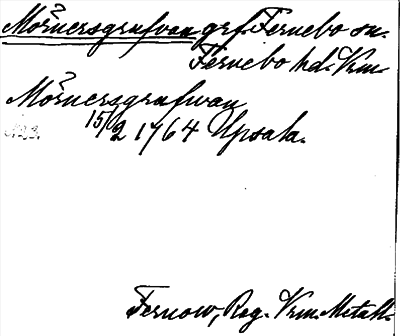 Mörnersgrufvan grf. Fernebo sn.
Fernebo hd. Vrm.
Mörnersgrufwan
15/2 1764 Upsala.
Fernow, Reg. Vrm. Metall.